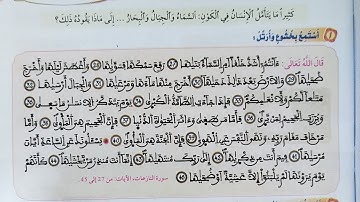 كَثِيرًا مَا يَتَأَمَّلُ الْإِنْسَانُ فِي الْكَوْنِ: السَّمَاءُ وَالْجِبَالُ وَالْبِحَارُ ... إِلَى مَاذَا يَقُودُهُ ذَلِكَ؟
1 أَسْتَمِعُ بِخُشُوعٍ وَأُرَتِّلُ:
قَالَ اللَّهُ تَعَالَى: ءَآنتُمُ أَشَدُّ خَلْقًا اَمِ السَّمَآءُ بَنَيٰهَا رَفَعَ سَمْكَهَا فَسَوَّيٰهَا وَأَغْطَشَ لَيْلَهَا وَأَخْرَجَ
ضُحَيٰهَا وَالَارْضَ بَعْدَ ذَٰلِكَ دَحَيٰهَآ أَخْرَجَ مِنْهَا مَآءَهَا وَمَرْعَيٰهَا وَالْجِبَالَ أَرْسَيٰهَا
مَتَٰعًا لَّكُمْ وَلِأَنْعَٰمِكُمْ فَإِذَا جَآءَتِ الطَّآمَّةُ الْكُبْرَىٰ يَوْمَ يَتَذَكَّرُ الِانسَٰنُ مَا سَعَىٰ
وَبُرِّزَتِ الْجَحِيمُ لِمَنْ يَّرَىٰ فَأَمَّا مَن طَغَىٰ وَءَاثَرَ الْحَيَوٰةَ الدُّنْيَا فَإِنَّ الْجَحِيمَ هِيَ الْمَأْوَىٰ وَأَمَّا
مَنْ خَافَ مَقَامَ رَبِّهِ وَنَهَى النَّفْسَ عَنِ الْهَوَىٰ فَإِنَّ الْجَنَّةَ هِيَ الْمَأْوَىٰ يَسْـَٔلُونَكَ عَنِ السَّاعَةِ أَيَّانَ
مُرْسَيٰهَا فِيمَ أَنتَ مِن ذِكْرَيٰهَآ إِلَىٰ رَبِّكَ مُنتَهَيٰهَآ إِنَّمَآ أَنتَ مُنذِرُ مَنْ يَّخْشَيٰهَا كَأَنَّهُمْ
يَوْمَ يَرَوْنَهَا لَمْ يَلْبَثُوٓا إِلَّا عَشِيَّةً اَوْ ضُحَيٰهَا
سورة النازعات، الآيات: من 27 إلى 45.